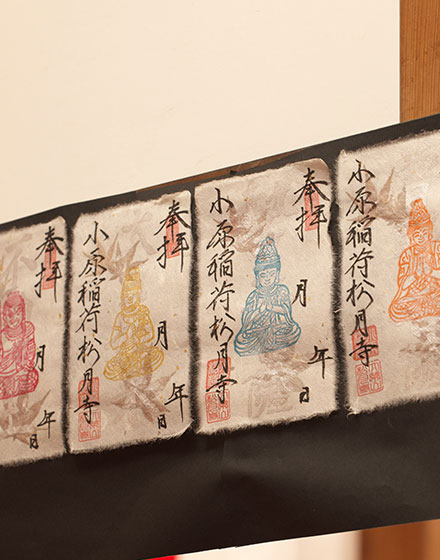 小原稲荷松月寺
奉拝
年 月 日
小原稲荷松月寺
奉拝
年 月 日
小原稲荷松月寺
奉拝
年 月 日